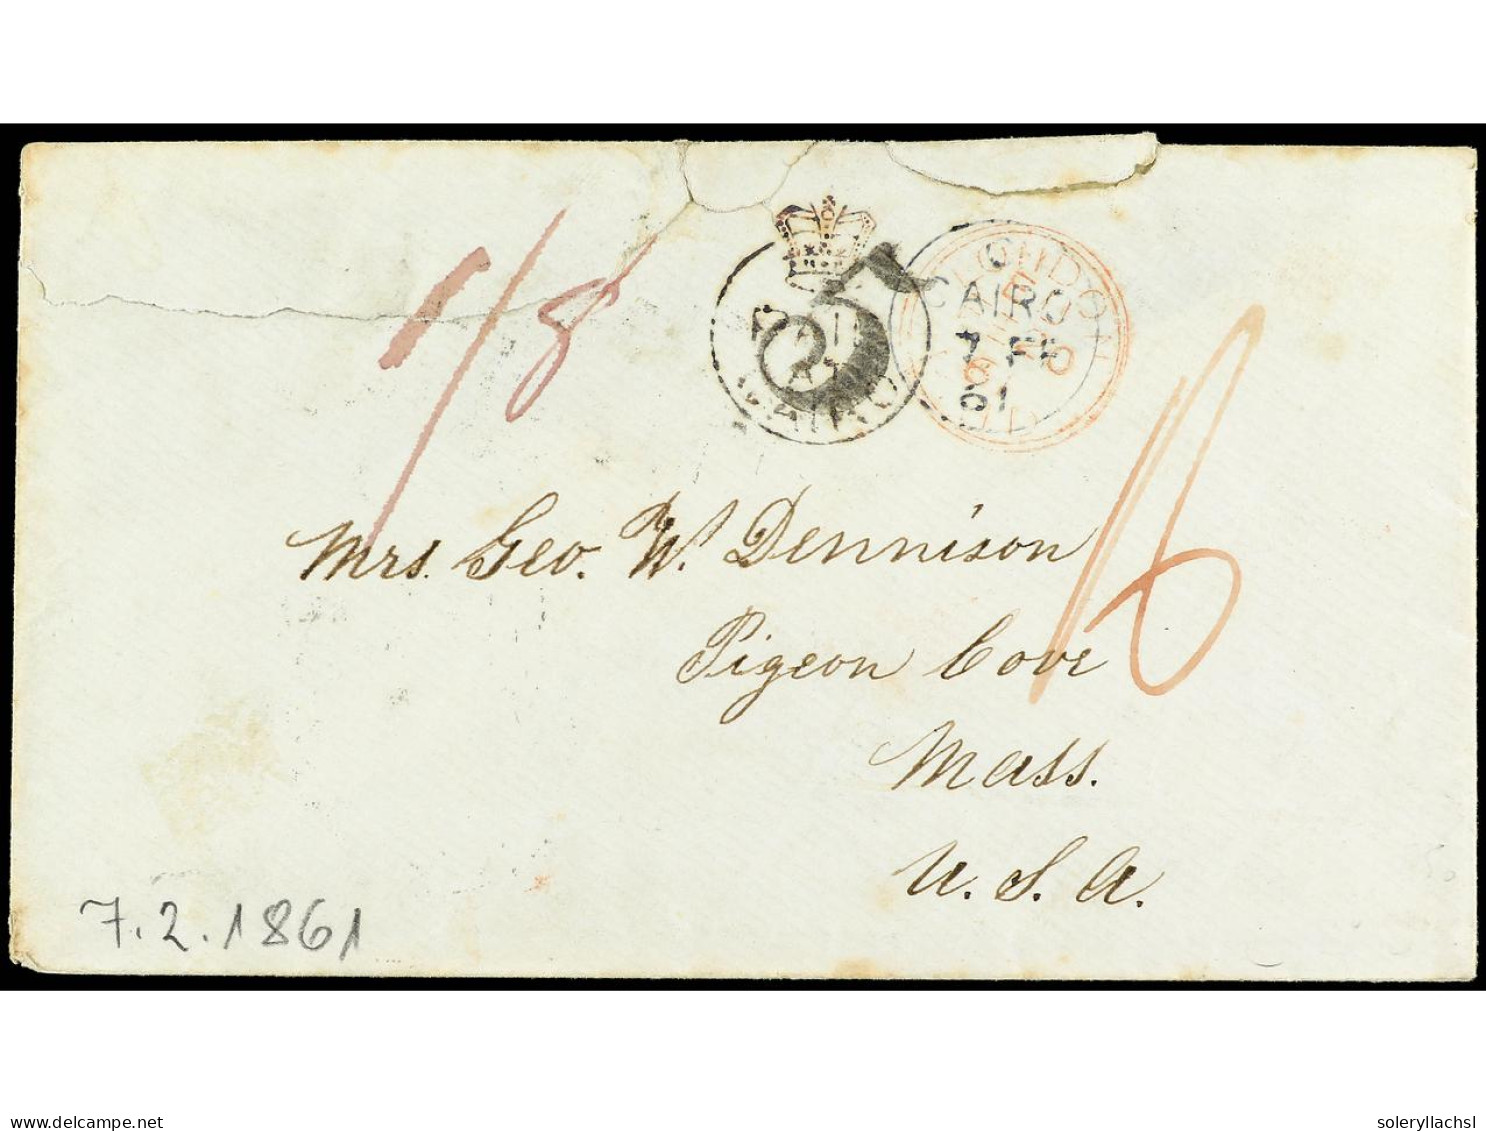 1/8
PAID
AT
CAIRO
5
LONDON
CAIRO
7 FE
61
PAID
16
Mrs. Geo. W. Dennison
Pigeon Cove
Mass.
U. S. A.
7.2.1861
delcampe.net
soleryllachsl